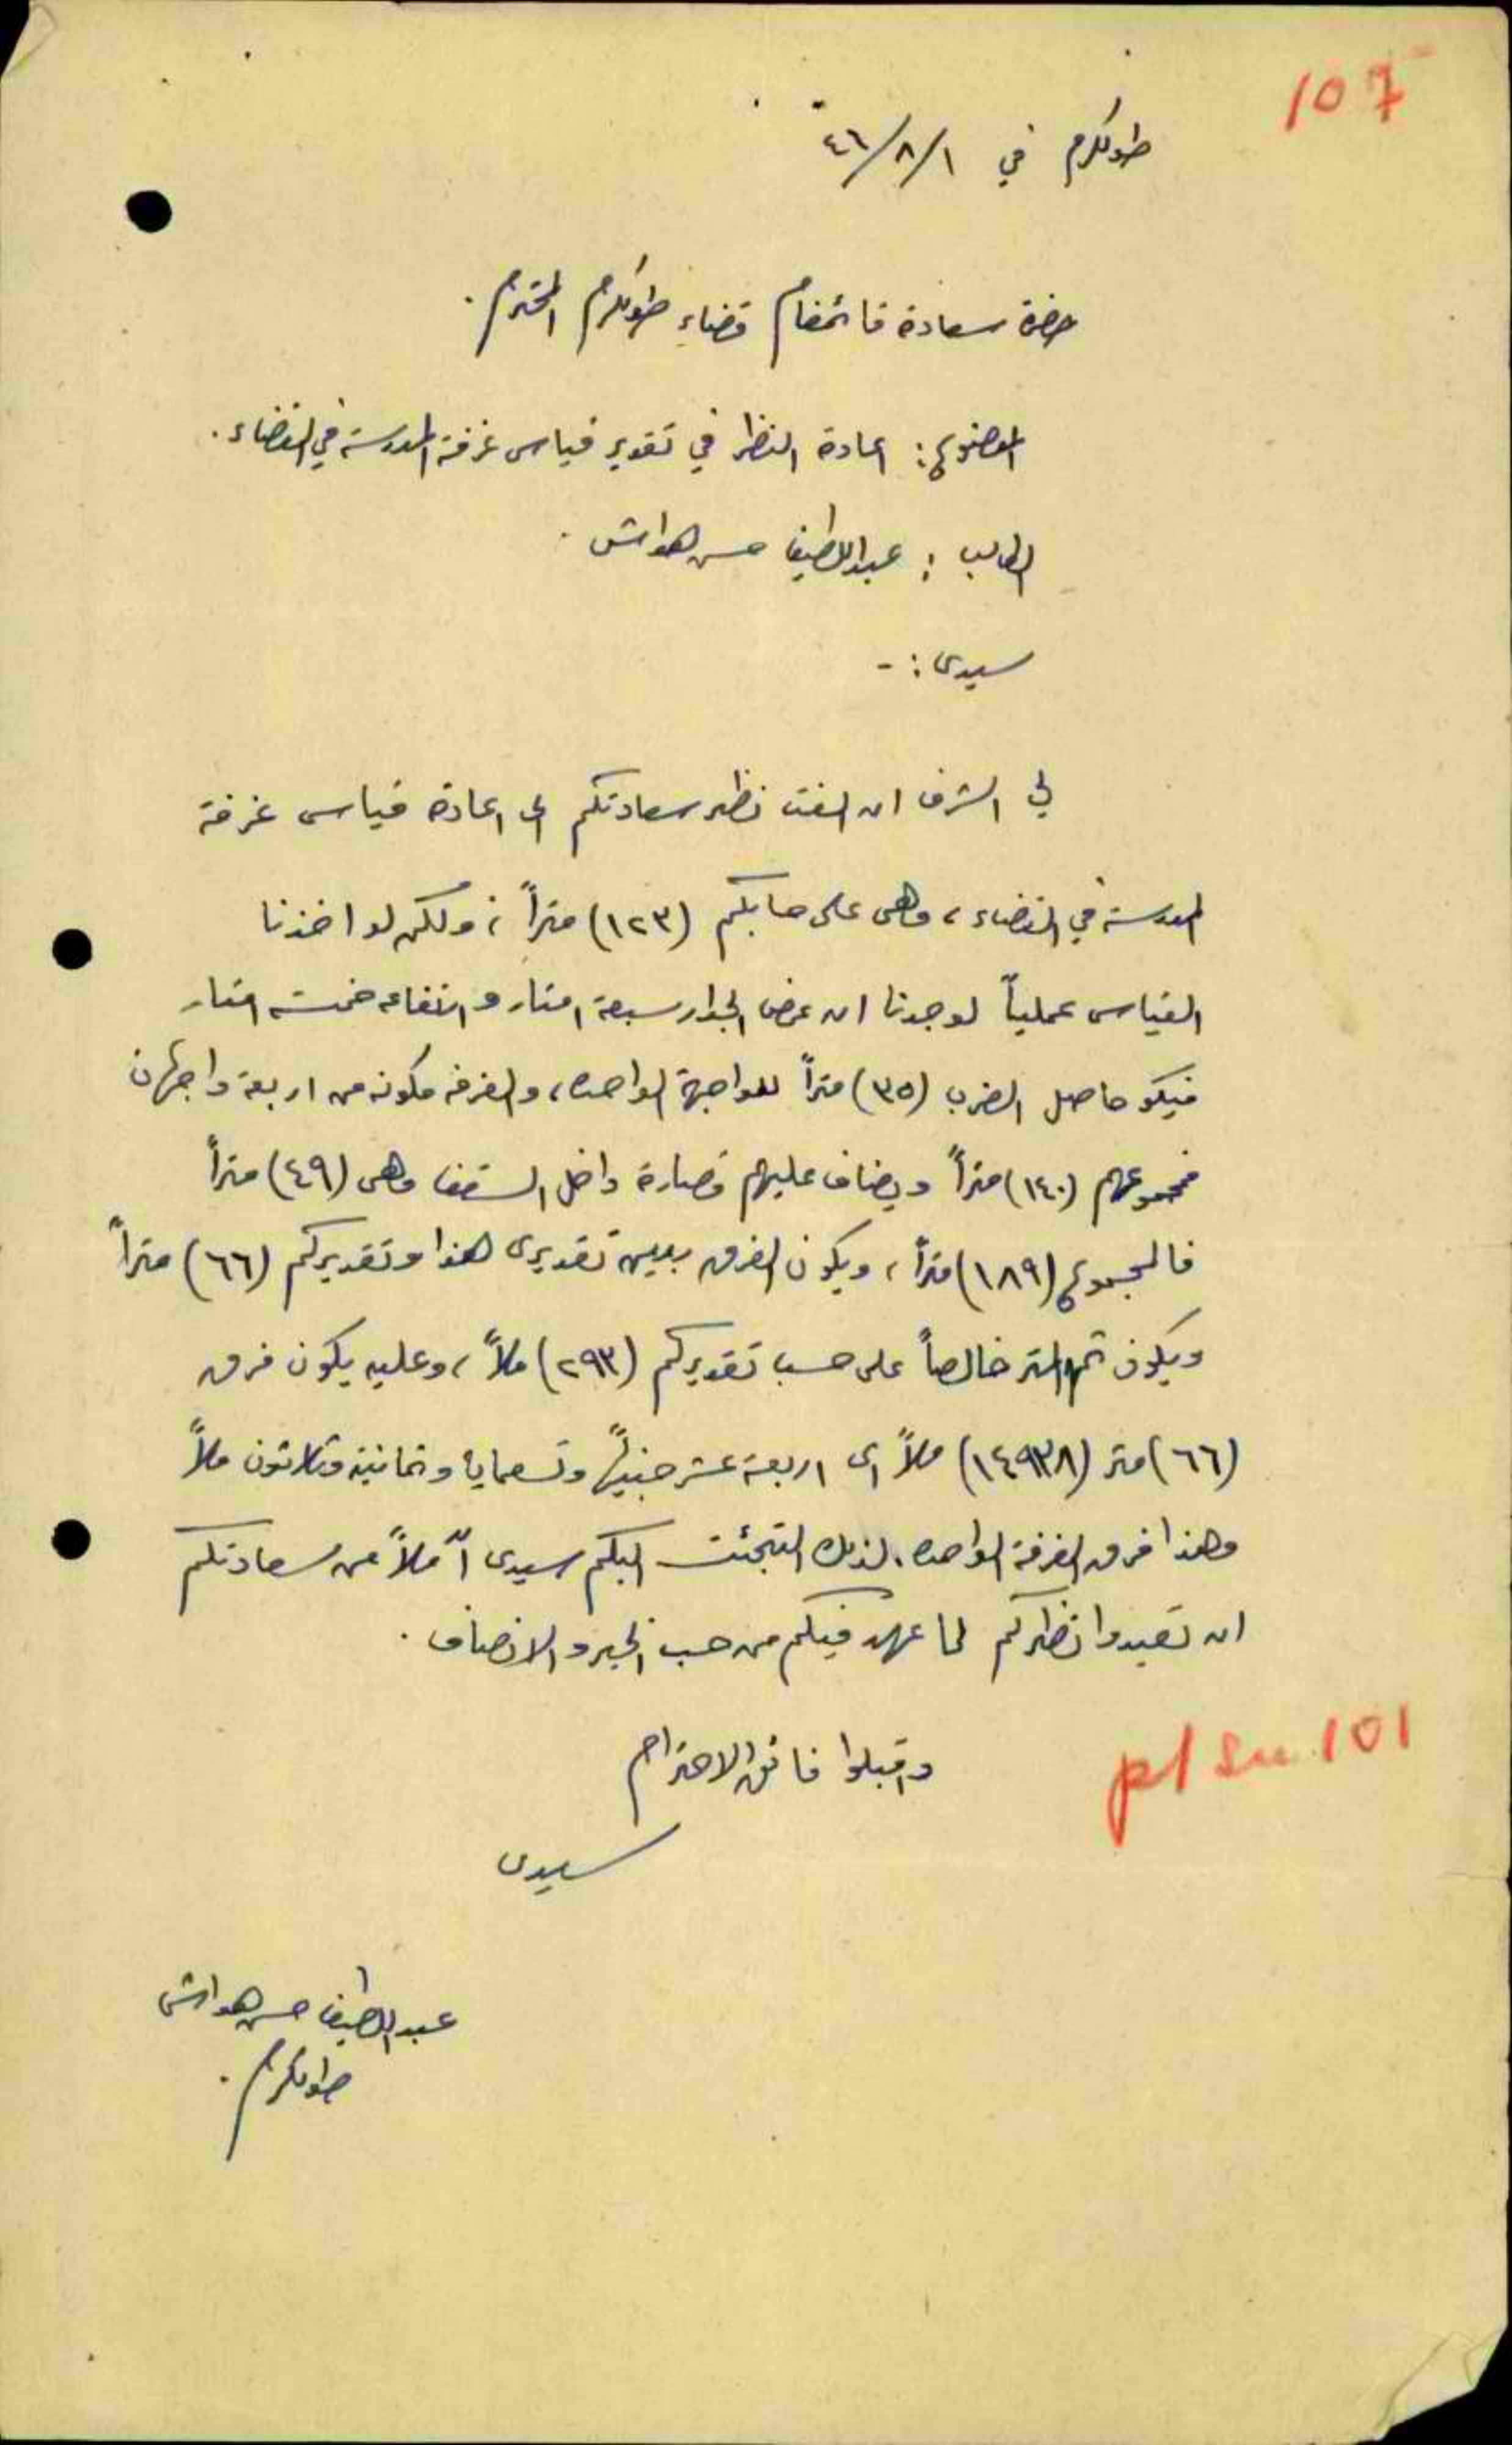 107
طولكرم في ٤٦/٨/١
حضرة سعادة قائمقام قضاء طولكرم المحترم .
الموضوع : اعادة النظر في تقدير قياس غرفة المدرسة في القضاء .
الطالب : عبداللطيف حسن هواش .
سيدى : -
لي الشرف ان الفت نظر سعادتكم الى اعادة قياس غرفة
المدرسة في القضاء ، وهى على حسابكم (١٢٣) متراً ، ولكن لو اخذنا
القياس عملياً لوجدنا ان عرض الجدار سبعة امتار وارتفاعه خمسة امتار
فيكو حاصل الضرب (٣٥) متراً للواجهة الواحده ، والغرفه مكونه من اربعة واجهات
فمجموعهم (١٤٠) متراً ويضاف عليهم قصارة داخل السقف وهى (٤٩) متراً
فالمجموع (١٨٩) متراً ، ويكون الفرق بين تقديرى هذا وتقديركم (٦٦) متراً
ويكون المتر خالصاً على حسب تقديركم (٢٩٣) ملاً ، وعليه يكون فرق
(٦٦) متر (١٤٩٣٨) ملاً اى اربعة عشر جنيهاً وتسعماية وثمانية وثلاثون ملاً
وهذا فرق الغرفة الواحده . لذلك التجئت اليكم سيدى آملاً من سعادتكم
ان تعيدوا نظركم لما عهد فيكم من حب الخير والانصاف .
واقبلوا فائق الاحترام
سيدى
p/ su 101
عبداللطيف حسن هواش
طولكرم .